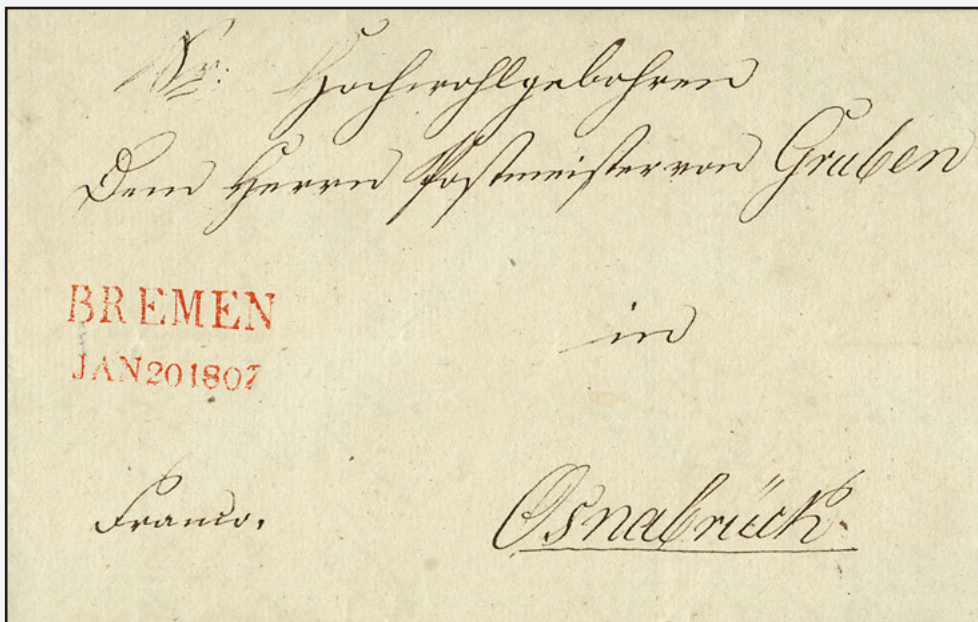 Sr. Hochwohlgebohren
Dem Herrn Postmeister von Gruben
BREMEN
JAN 20 1807
in
Franco.
Osnabrück.